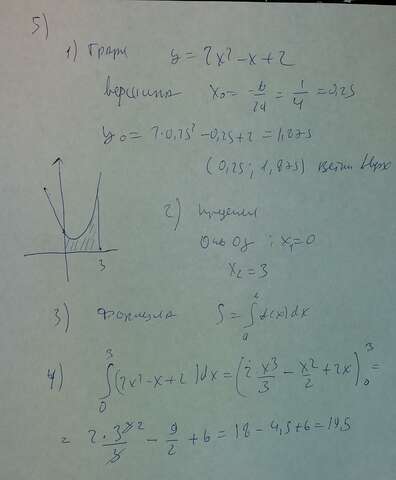 5)
1) Графи y = 2x² - x + 2
вершина x₀ = -b/2a = 1/4 = 0,25
y₀ = 2·0,25² - 0,25 + 2 = 1,875
(0,25; 1,875) ветви вверх
2) пределы
Ось Oy : x₁ = 0
x₂ = 3
3
3) Формула S = ∫ₐᵇ f(x) dx
4) ∫₀³ (2x² - x + 2) dx = (2·x³/3 - x²/2 + 2x)₀³ =
= 2·3³/3 - 9/2 + 6 = 18 - 4,5 + 6 = 19,5